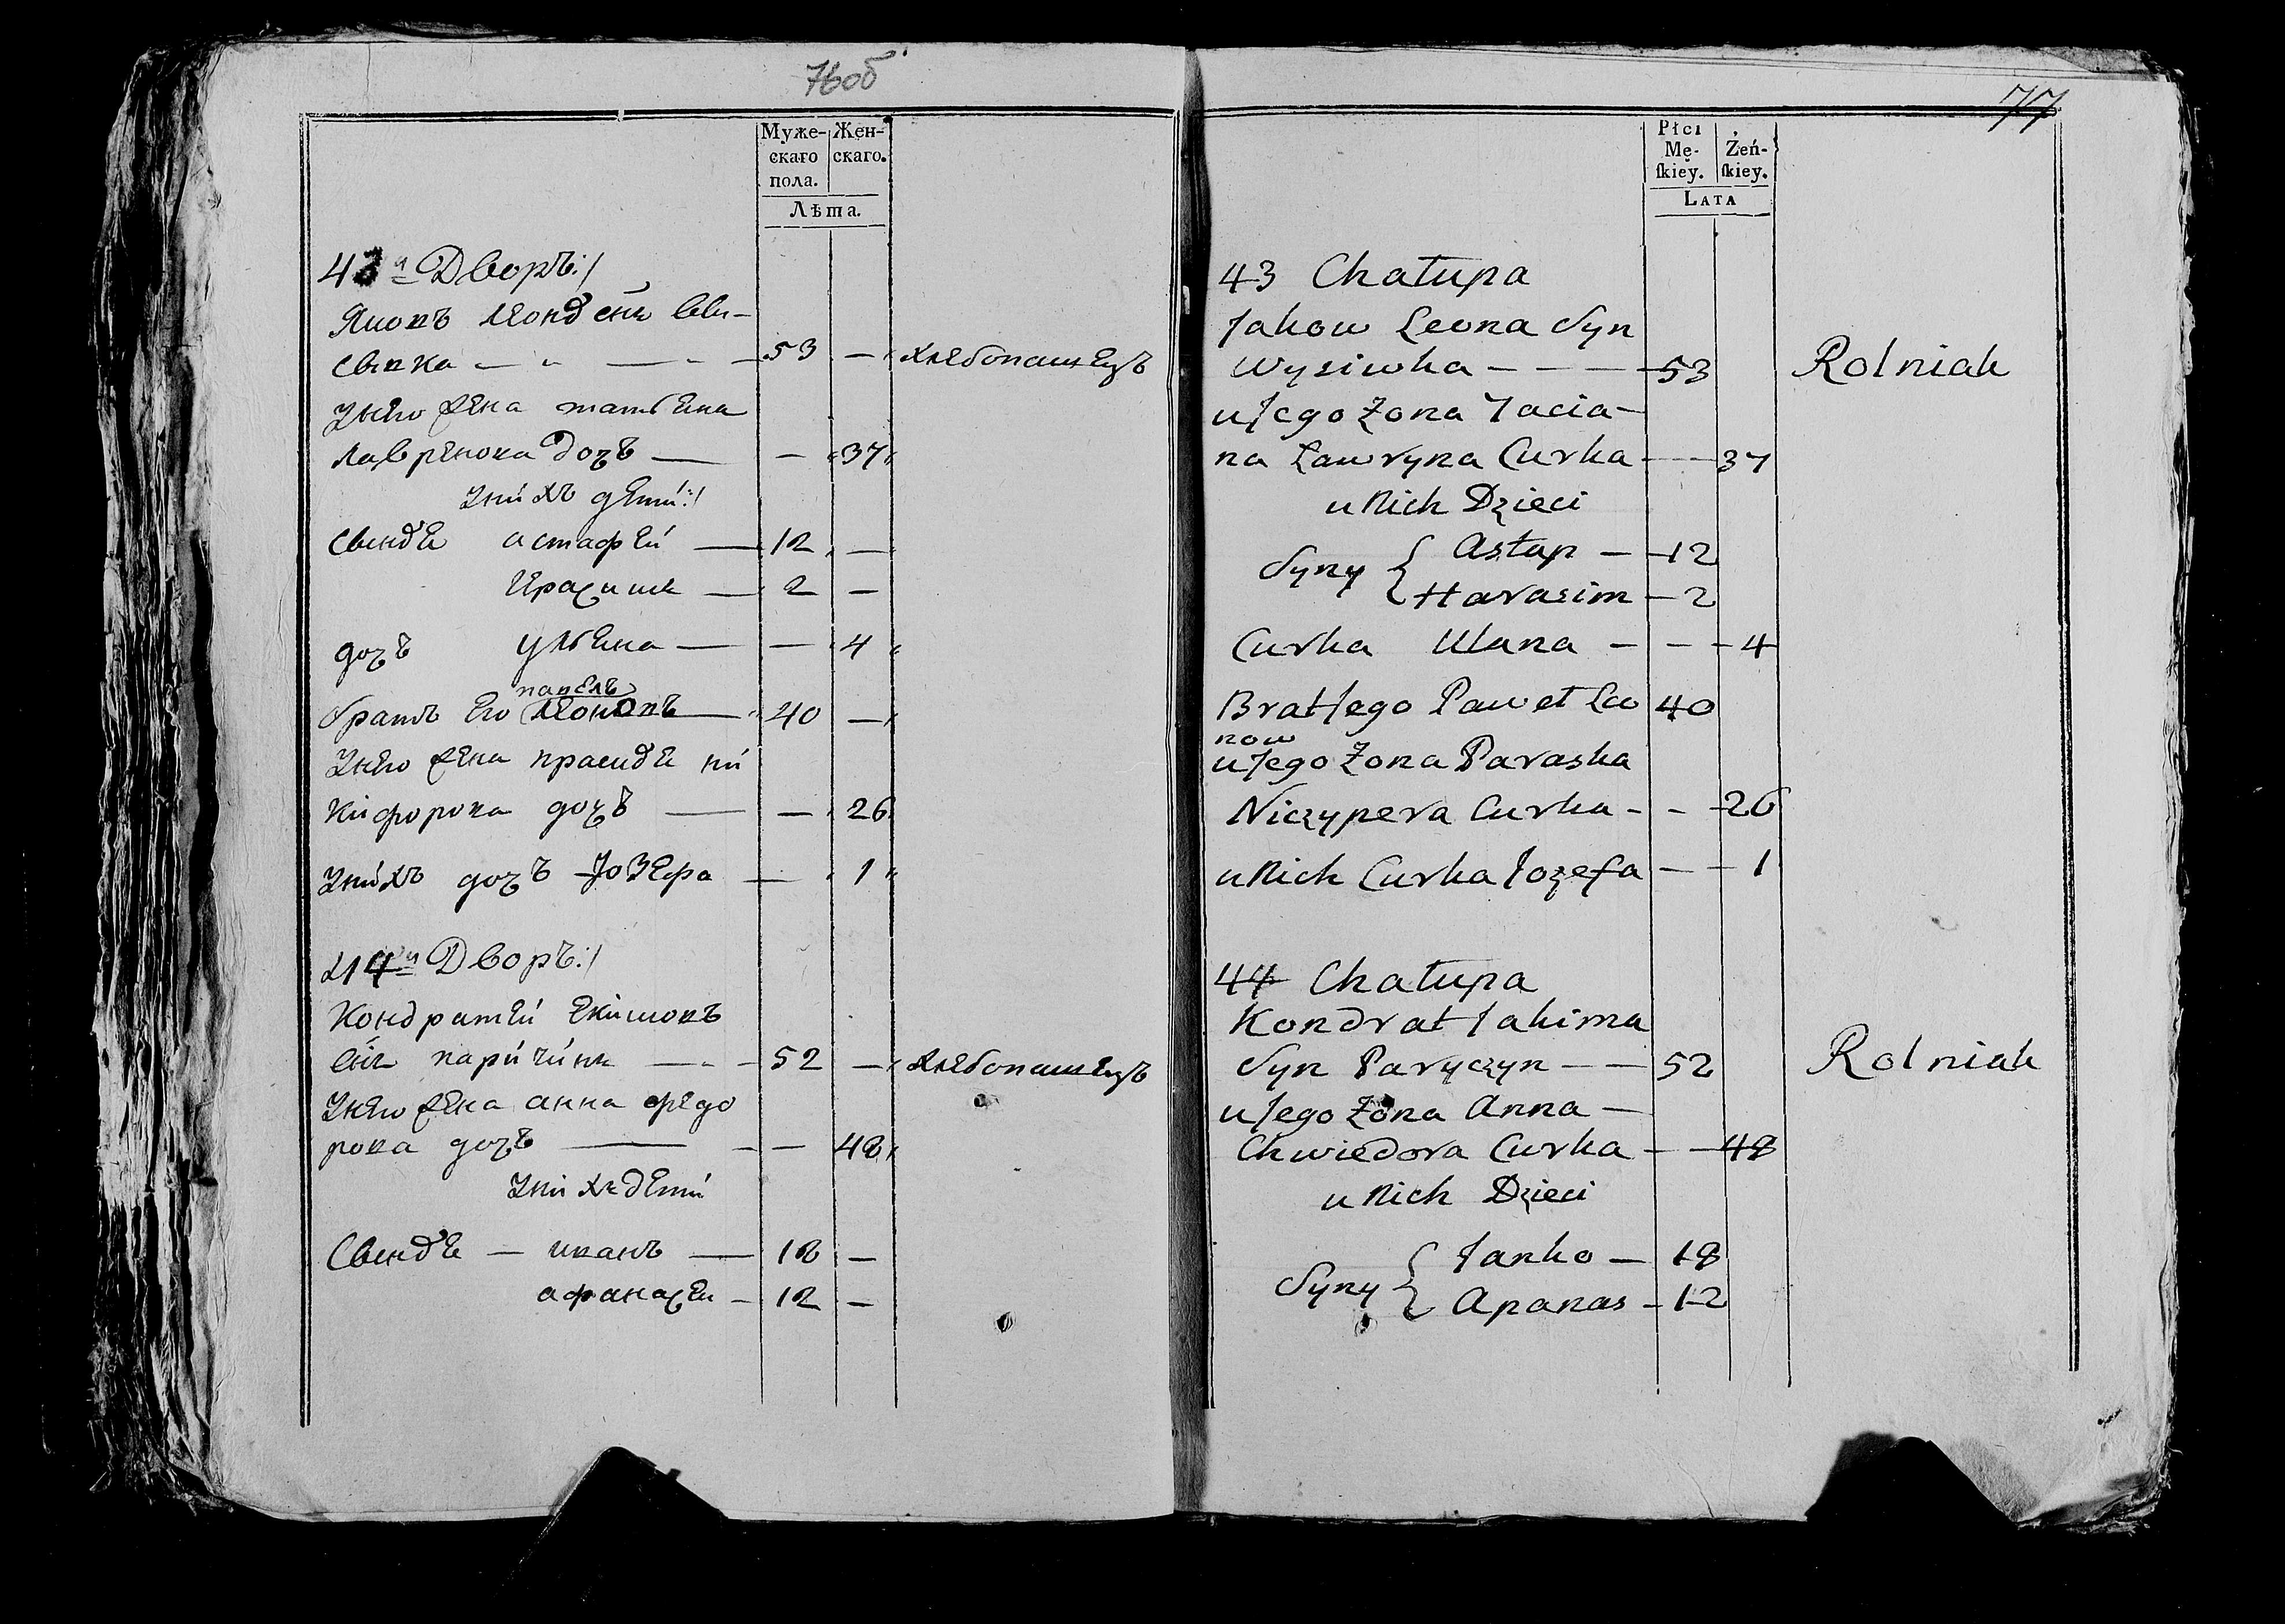 76об
Муже-
скаго
пола.
Жен-
скаго.
Лѣта.
43й Дворъ:/
Яковъ
свика — „ — „ — 53 — хлебопашецъ
Унего жена татьяна
лавренова дочъ — — 37
Унихъ дети:/
астафеи — 12 —
Герасим — 2 —
дочъ ульяна — — 4
павелъ
братъ его — 40 —
Унего жена праскавья ни
кифорова дочъ — — 26
Унихъ дочъ Юзефа — 1
44й Дворъ:/
Кондратеи екимовъ
паричинъ — 52 — хлебопашецъ
Унего жена анна федо
рова дочъ — — 48
Унихъ дети
иванъ — 18 —
афанасеи — 12 —
77
Płci
Mę-
ſkiey.
Żeń-
ſkiey.
LATA
43 Chałupa
Jakow Leona Syn
Wysiwka — — — 53 Rolnik
u Jego Żona Tacia-
na Ławryna Curka — — 37
u Nich Dzieci
Syny { Astap — 12
Harasim — 2
Curka Ulana — — — 4
Brat Jego Paweł Lw 40
now
u Jego Żona Paraska
Niczypera Curka — — 26
u Nich Curka Jozefa — — 1
44 Chałupa
Kondrat Jakima
Syn Paryczyn — — 52 Rolnik
u Jego Żona Anna —
Chwiedora Curka — — 48
u Nich Dzieci
Syny { Janko — 18
Apanas — 12